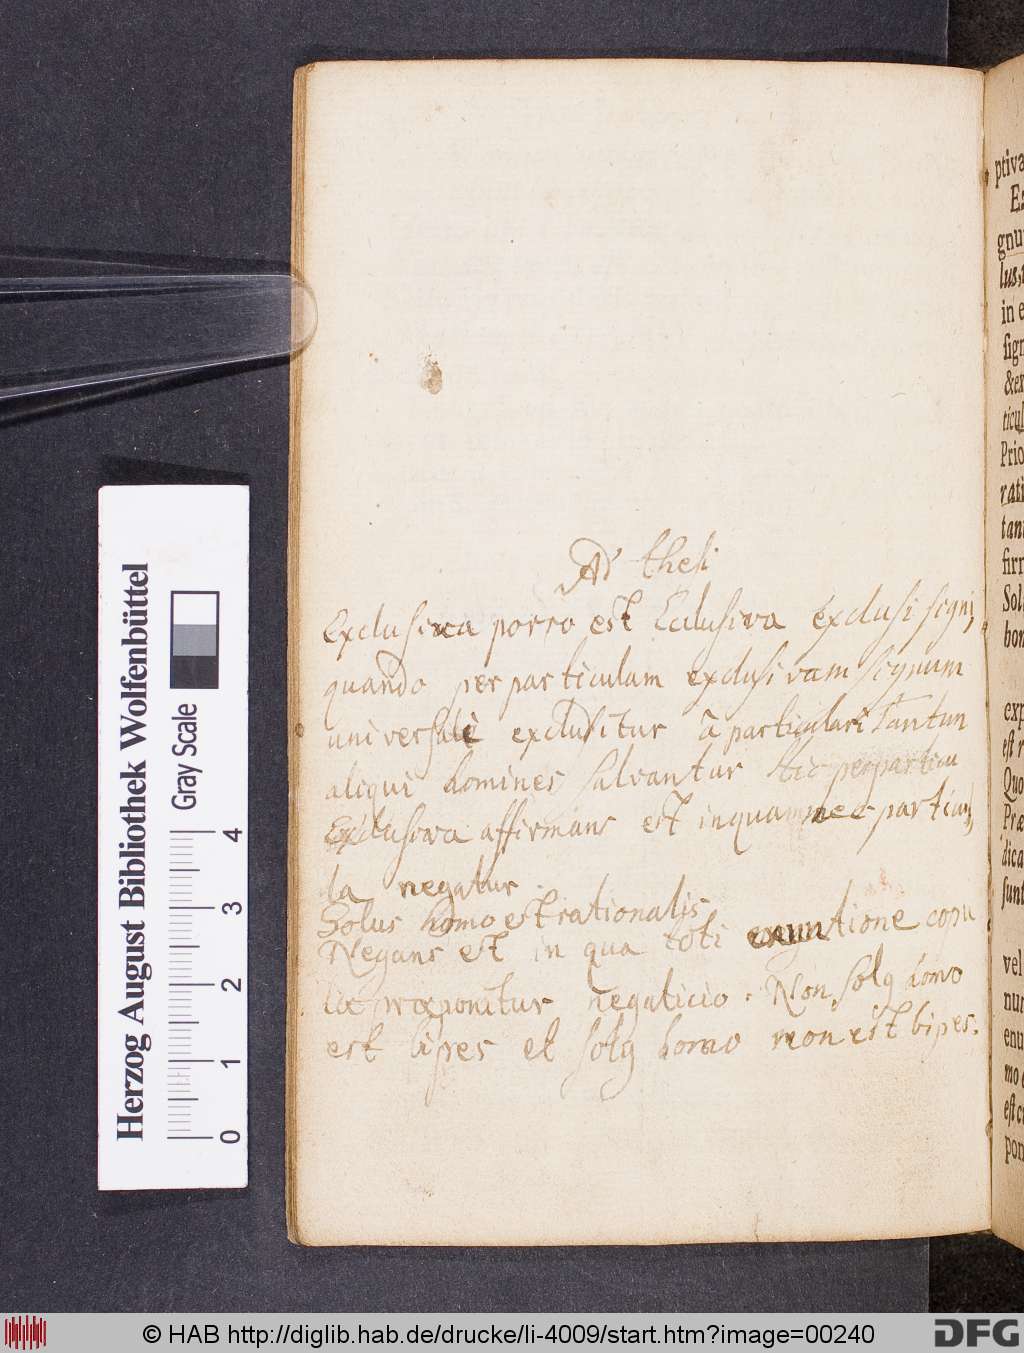 Ad thesi
Exclusiva porro est Eclusiva Exclusi signi,
quando per particulam exclusivam signum
universale excluditur à particulari Tantum
aliqui homines salvantur
Exclusiva affirmans est in qua nec particu
la negatur
Solus homo est rationalis
Negans est in qua toti enuntione copu
læ præponitur negaticio. Non solq homo
est bipes et solq homo non est bipes.
ptiva
gnu
lus,
in e
sign
&ex
ticul
Prio
rati
tant
firm
Soli
hon
exp
est
Quo
Præ
dica
sunt
vel
nun
enu
mo
est
pon
Herzog August Bibliothek Wolfenbüttel
Gray Scale
0 1 2 3 4
© HAB http://diglib.hab.de/drucke/li-4009/start.htm?image=00240
DFG